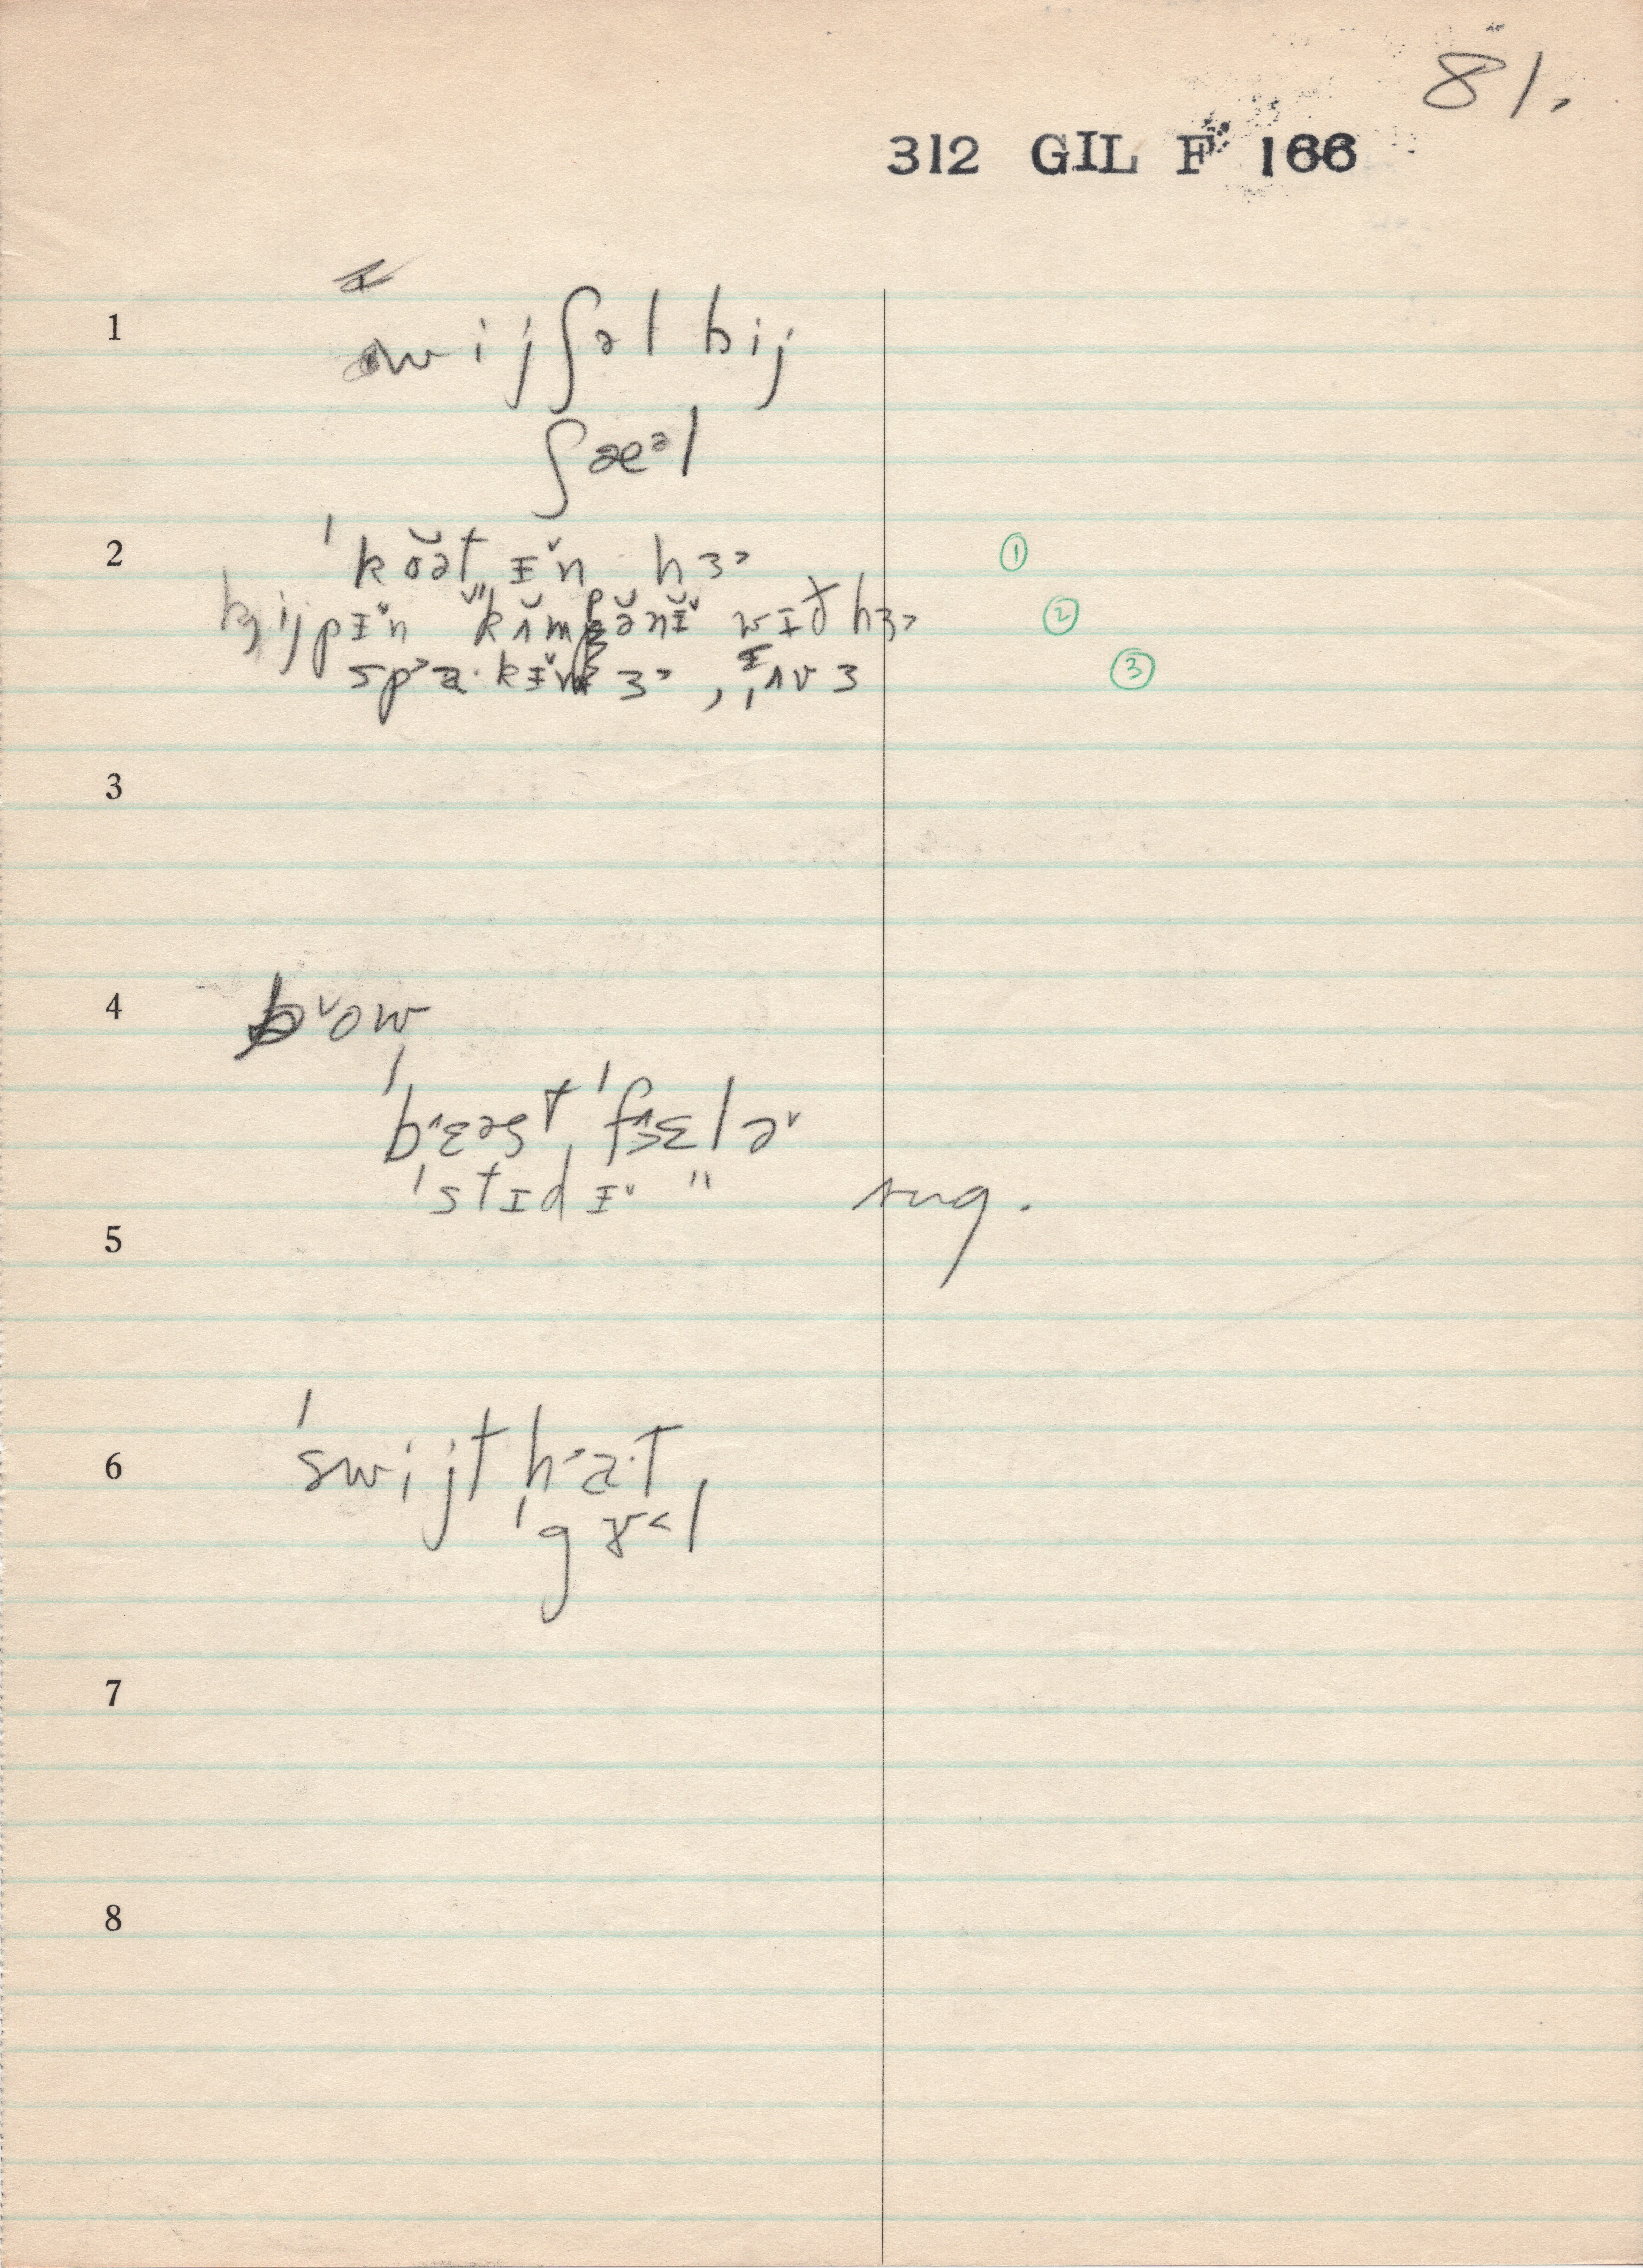 81.
312 GIL F 166
1 wijʃəl bij
ʃæᵊl
2 ˈkoət ɪn hɜ ①
kijpɪn kʌmpənɪ wɪð hɜ ②
spakɪn ɜ, ʌv ɜ ③
3
4 bow
ˈbɛəst ˈfɛlə
ˈstɪdɪ " sug.
5
6 ˈswijt haˑt,
ˈgɤl
7
8